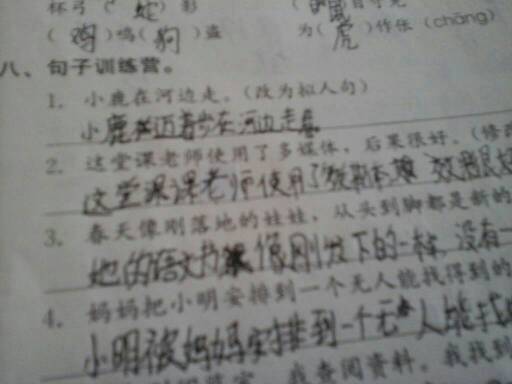 杯弓(蛇)影
(鸡)鸣(狗)盗 为(虎)作伥(chāng)
八、句子训练营。
1. 小鹿在河边走。(改为拟人句)
小鹿迈着步在河边走
2. 这堂课老师使用了多媒体,后果很好。(修改
这堂课课老师使用了 效果很好
3. 春天像刚落地的娃娃,从头到脚都是新的
她的语文书像刚发下的一样 没有一
4. 妈妈把小明安排到一个无人能找得到的
小明被妈妈安排到一个无人能找
我查阅资料。我找到